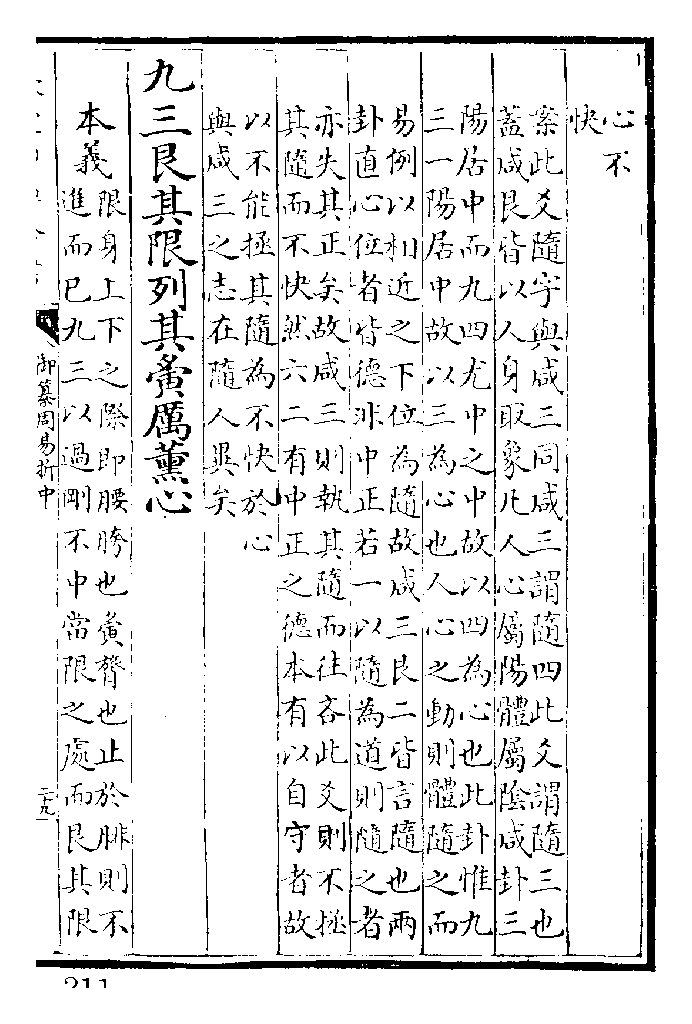 心不
快
案此爻隨字與咸三同咸三謂隨四此爻謂隨三也
蓋咸艮皆以人身取象凡人心屬陽體屬陰咸卦三
陽居中而九四尤中之中故以四為心也此卦惟九
三一陽居中故以三為心也人心之動則體隨之而
易例以相近之下位為隨故咸三艮二皆言隨也兩
卦直心位者皆德非中正若一以隨為道則隨之者
亦失其正矣故咸三則執其隨而往吝此爻則不拯
其隨而不快然六二有中正之德本有以自守者故
以不能拯其隨為不快於心
與咸三之志在隨人異矣
九三艮其限列其夤厲薰心
本義限身上下之際即腰胯也夤膂也止於腓則不
進而已九三以過剛不中當限之處而艮其限
御纂周易折中
二十九